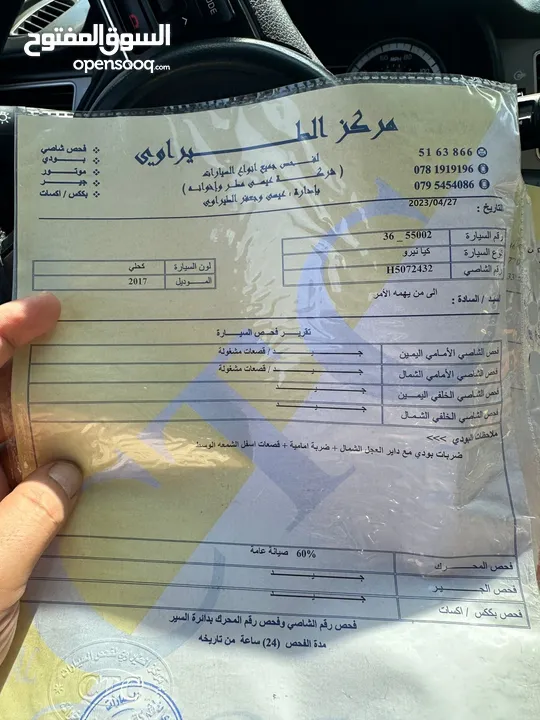 السوق المفتوح
opensooq.com
مركز الطيراوي
لفحص جميع انواع السيارات
( شركة عيسى مطر واخوانه )
بإدارة : عيسى وجعفر الطيراوي
فحص شاصي
بودي
موتور
جير
بكس / اكسات
51 63 866
078 1919196
079 5454086
التاريخ : 2023/04/27
رقم السيارة 36 _ 55002
نوع السيارة كيا نيرو
رقم الشاصي H5072432
لون السيارة كحلي
الموديل 2017
السيد / السادة : الى من يهمه الأمر
تقرير فحص السيارة
فحص الشاصي الأمامي اليمين جيد / قصعات مشغولة
فحص الشاصي الأمامي الشمال جيد / قصعات مشغولة
فحص الشاصي الخلفي اليمين جيد
فحص الشاصي الخلفي الشمال جيد
ملاحظات البودي >>>
ضربات بودي مع داير العجل الشمال + ضربة امامية + قصعات اسفل الشمعه الوسط
فحص المحرك 60% صيانة عامة
فحص الجير جيد
فحص بكس / اكسات جيد
فحص رقم الشاصي وفحص رقم المحرك بدائرة السير
مدة الفحص (24) ساعة من تاريخه
CTC